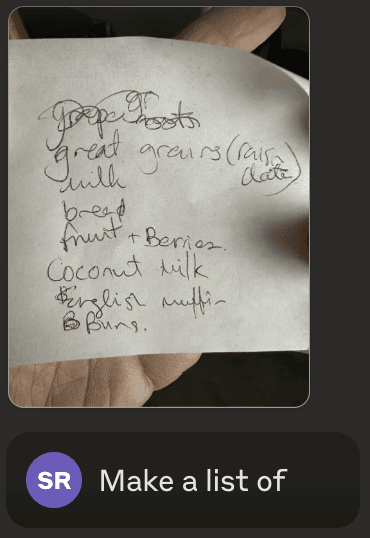 great grains (raisin
date)
milk
bread
fruit + Berries.
Coconut milk
English muffin
B Buns.
SR
Make a list of